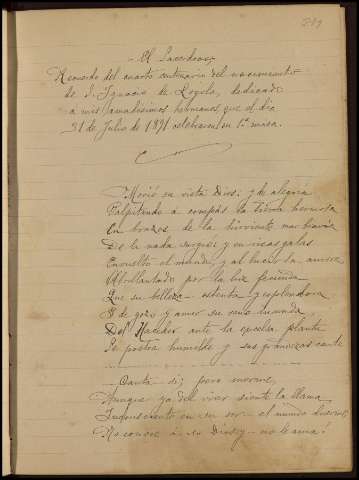 El Sacerdocio
Recuerdo del cuarto centenario del nacimiento
de S. Ignacio de Loyola, dedicado
a mis amadísimos hermanos que el día
31 de Julio de 1891 celebraron su 1ª misa.
Movió su vista Dios; y de alegría
Palpitando á compás la tierra hermosa
En brazos de la hirviente mar bravía
De la nada surgió; y en ricas galas
Envuelto el mundo, y al lucir la aurora
Abrillantado por la luz fecunda
Que su belleza ostenta y esplendora
Y de gozo y amor su seno inunda,
Del Hacedor ante la excelsa planta
Se postra humilde y sus grandezas canta
Canta sí; pero
Aunque ya del vivir siente la llama
Inconsciente en su ser el mundo
No conoce á su Dios, no le ama!